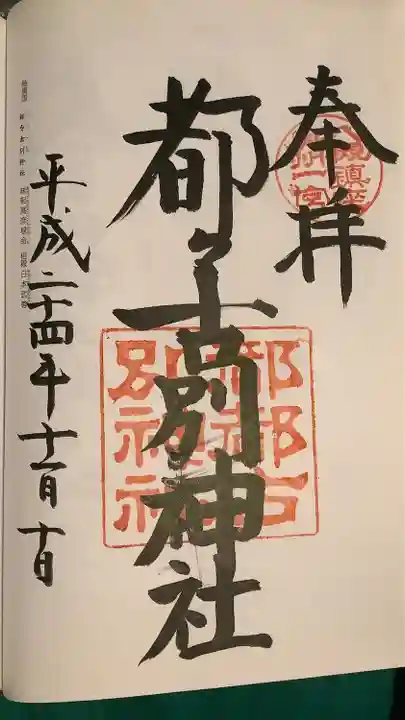 奉拝
都々古別神社
都都古
別神社
平成二十四年十一月十日
都々古別神社